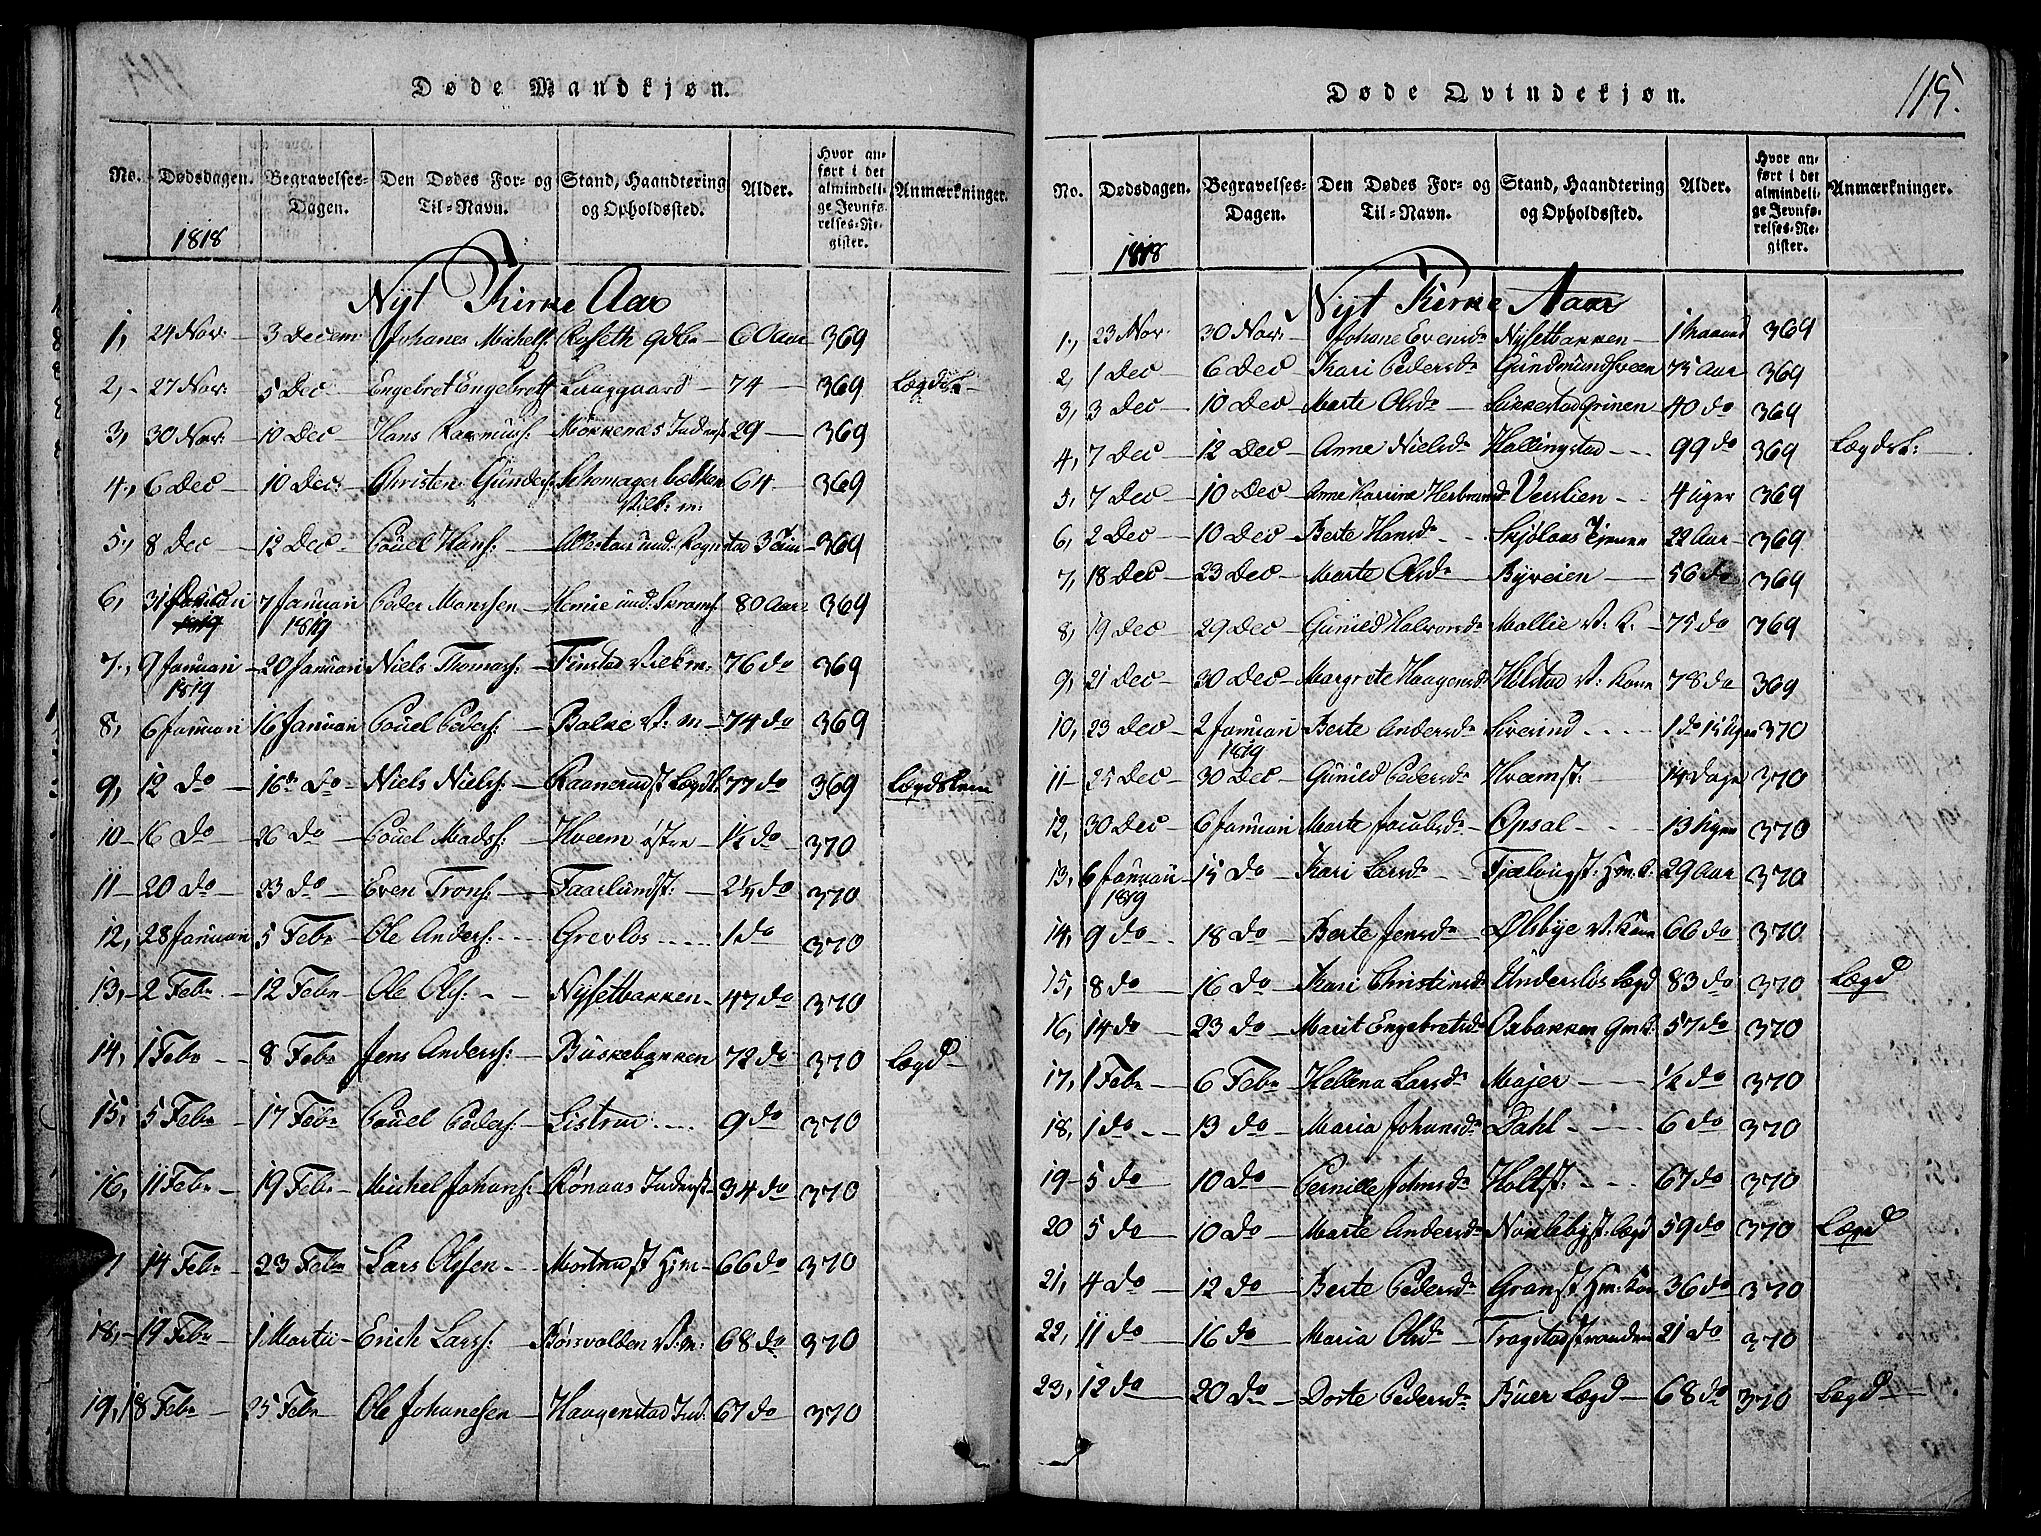 Døde Mandkjøn.
No. Dødsdagen. Begravelses-Dagen. Den Dødes For- og Til-Navn. Stand, Haandtering og Opholdssted. Alder. Hvor anført i det almindelige Jevnførelses-Register. Anmærkninger.
1818
Nyt Kirke Aar
1, 24 Nov: 3 Decem: Johanes Michels: 60 Aar 369
2, 27 Nov: 5 Dec Engebret Engebrets 74 369 Lægdsl:
3, 30 Nov: 10 Dec Hans Rasmuss: 29 369
4, 6 Dec 10 Dec: Christen Gunders: Schomagerbækken 64 369
5, 8 Dec 12 Dec Pouel Hans: 369
6, 31 7 Januari 1819 Peder Monssen 80 Aar 369
7, 9 Januari 1819 20 Januari Niels Thomass: Finstad 76 do 369
8, 6 Januari 16 Januari Pouel Peders: Balke V: m 74 do 369
9, 12 do 16 do Niels Niels: Raanerudst Lægdl: 77 do 369 Lægdslem
10 16 do 26 do Pouel Mads: Hveem østre 1½ do 370
11 20 do 23 do Even Trons: Faarlundst: 370
12, 28 Januari 5 Febr Ole Anders: Grevlos 1 do 370
13, 2 Febr 12 Febr Ole Ols: Nysetbakken 47 do 370
14, 1 Febr 8 Febr Jens Anderss: Buskebakken 72 do 370 Lægd
15, 5 Febr 17 Febr Pouel Peders: Listrud 9 do 370
16, 11 Febr 19 Febr Michel Johans: Rønaas Inderst 34 do 370
14 Febr 23 Febr Lars Olssen 66 do 370
18, 19 Febr 1 Martii Erich Lars: Børsvolden V: m: 68 do 370
19, 18 Febr 25 Febr Ole Johanesen Haagenstad Ind: 67 do 370
Døde Qvindekjøn.
115.
No. Dødsdagen. Begravelses-Dagen. Den Dødes For- og Til-Navn. Stand, Haandtering og Opholdssted. Alder. Hvor anført i det almindelige Jevnførelses-Register. Anmærkninger.
1818
Nyt Kirke Aar
1, 23 Nov 30 Nov: Johane Evensdr Nysetbakken 1 Maaned 369
2, 1 Dec 6 Dec Kari Pedersdr Gundmundsveen 75 Aar 369
3, 3 Dec 10 Dec Marte Olsdr 40 do 369
4, 7 Dec 12 Dec Anne Nielsdr Hallingstad 99 do 369 Lægdsl:
5, 7 Dec 10 Dec Anne Karrine Herbrandsdr Verslien 4 Uger 369
6, 2 Dec 10 Dec Berte Hansdr Skjølaas Tjeneer 22 Aar 369
7, 18 Dec 23 Dec Marte Olsdr Byveien 56 do 369
8, 19 Dec 29 Dec Gunild Halvorsdr 75 do 369
9, 21 Dec 30 Dec Margrete Haagensdr Holstad V: Kone 78 do 369
10, 23 Dec 2 Januari 1819 Berte Andersdr Sverind 370
11 25 Dec 30 Dec Gunild Pedersdr Hvamst: 14 Dage 370
12, 30 Dec 6 Januari Marte Jacobsdr Opsal 13 Uger 370
13, 6 Januari 1819 15 do Kari Larsdr 29 Aar 370
14, 9 do 18 do Berte Jensdr Ølsbye V: Kone 66 do 370
15, 8 do 16 do Kari Christinsdr Underslos Lægd 83 do 370 Lægd
16, 14 do 23 do Marit Engebretsdr Oxbakken 57 do 370
17, 1 Febr 6 Febr Hellena Larsdr Majer ½ do 370
18, 1 do 13 do Maria Johansdr Dahl 6 do 370
19 5 do 10 do Pernille Johnsdr Holtst: 67 do 370
20 5 do 10 do Marte Andersdr Noklebyst: Lægd 59 do 370 Lægd
21, 4 do 12 do Berte Pedersdr Granst Hm: Kone 36 do 370
22, 11 do 16 do Maria Olsdr Frogstadstranden 21 do 370
23, 12 do 20 do Dorte Pedersdr Buer Lægd 68 do 370 Lægd